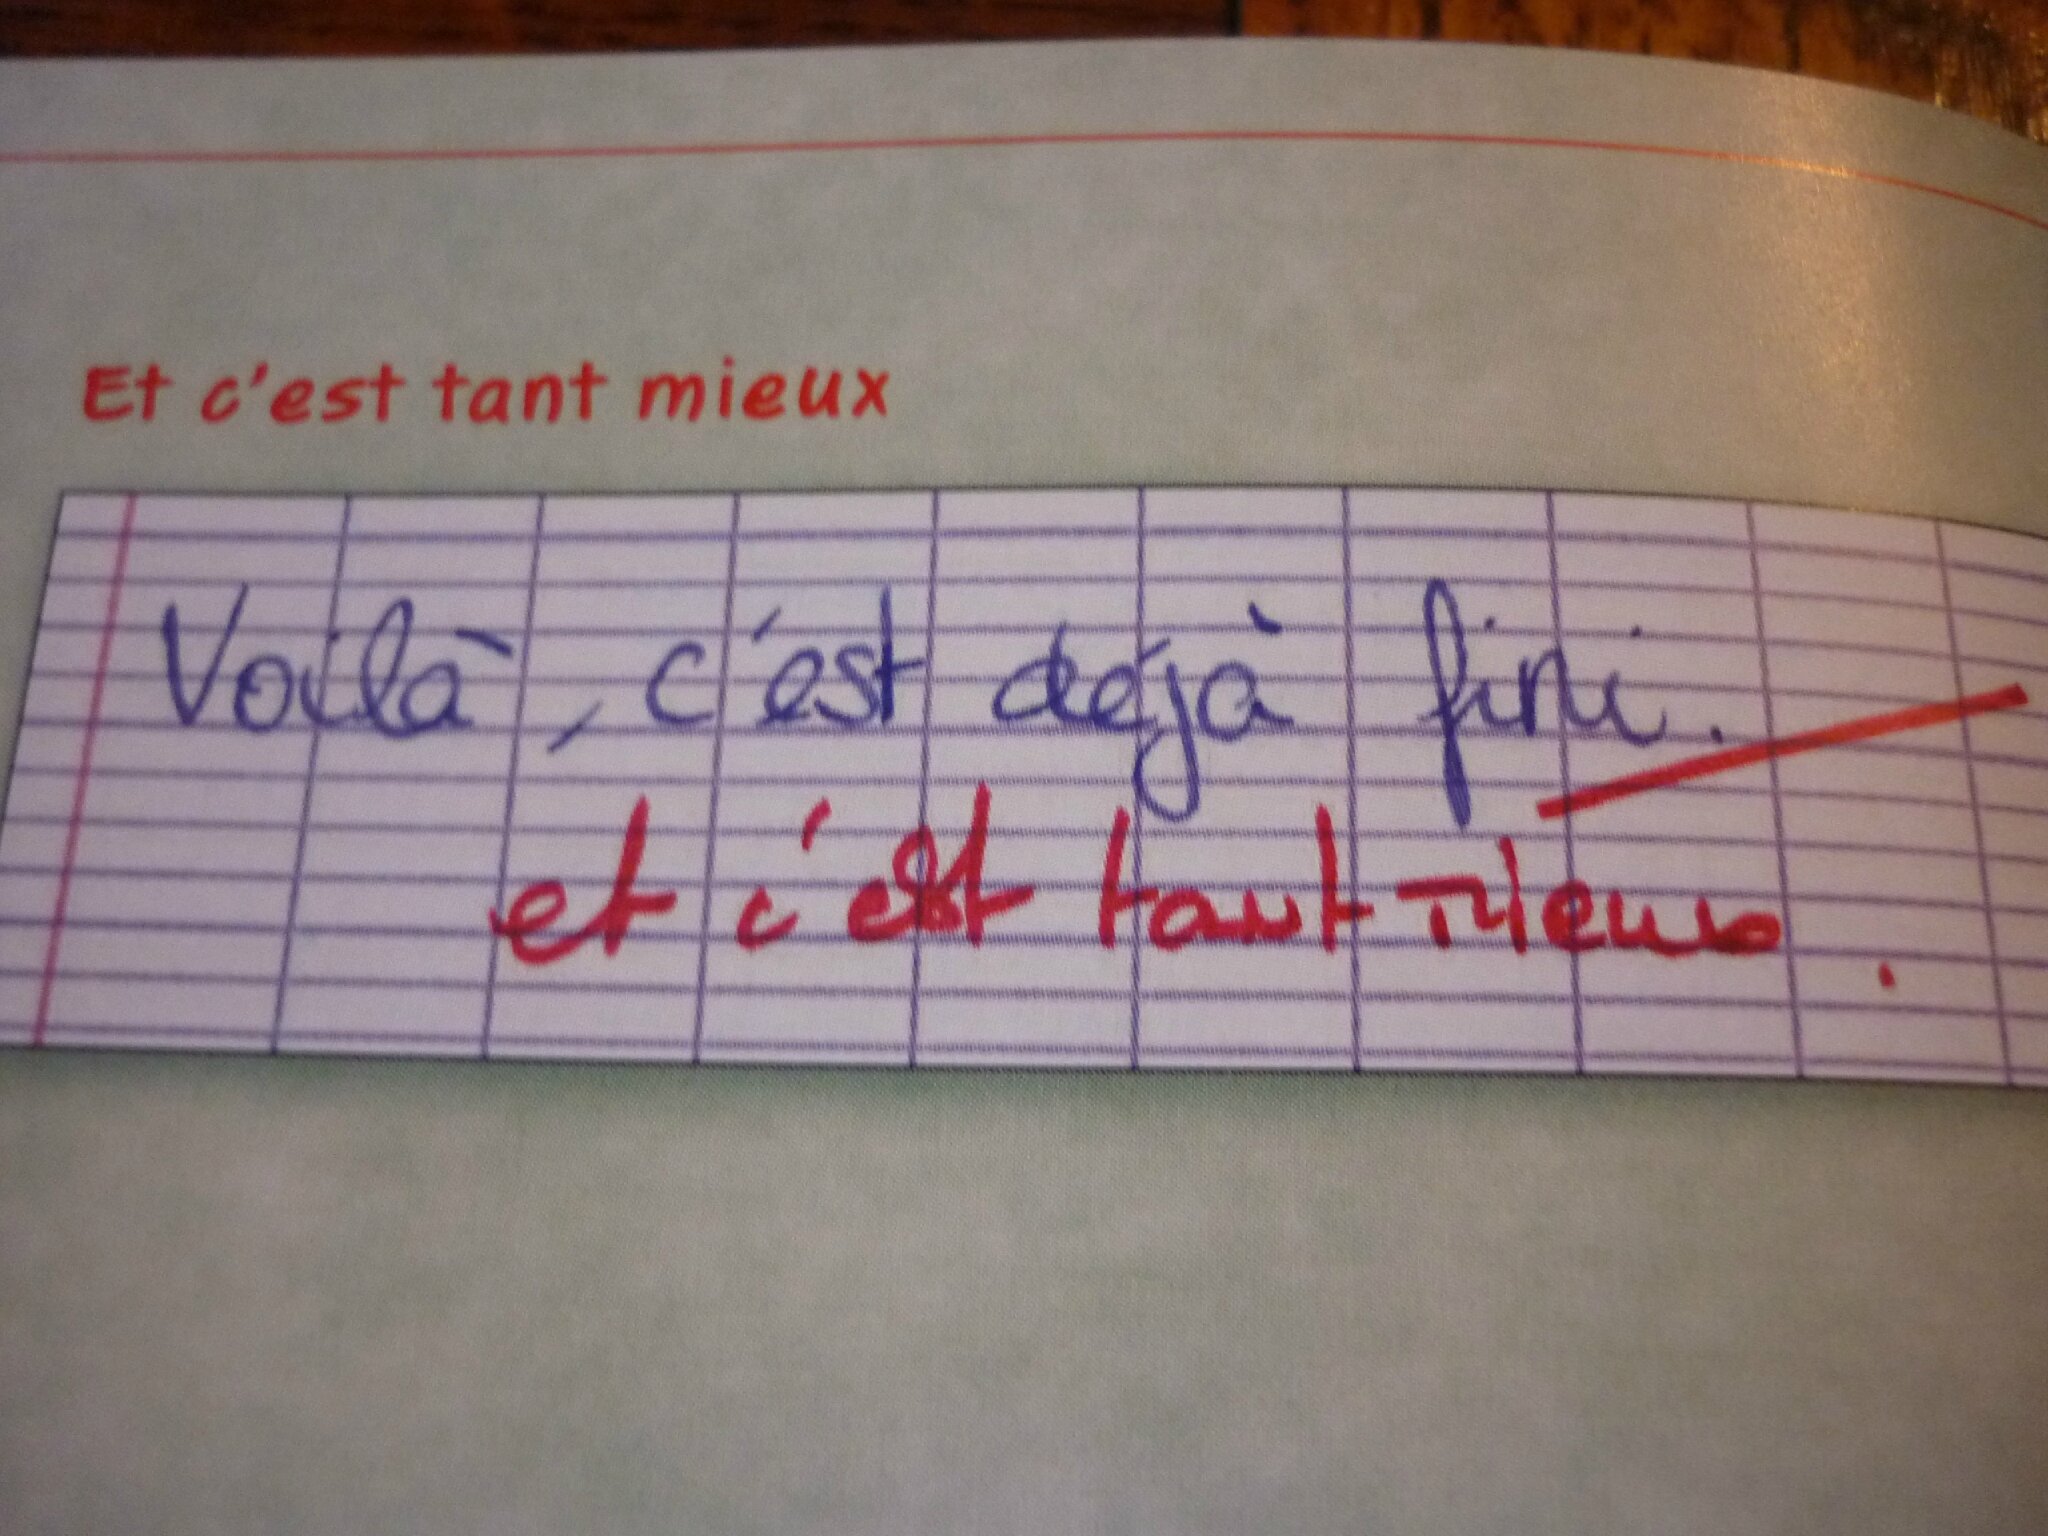 Et c'est tant mieux
Voilà, c'est déjà fini.
et c'est tant mieux.